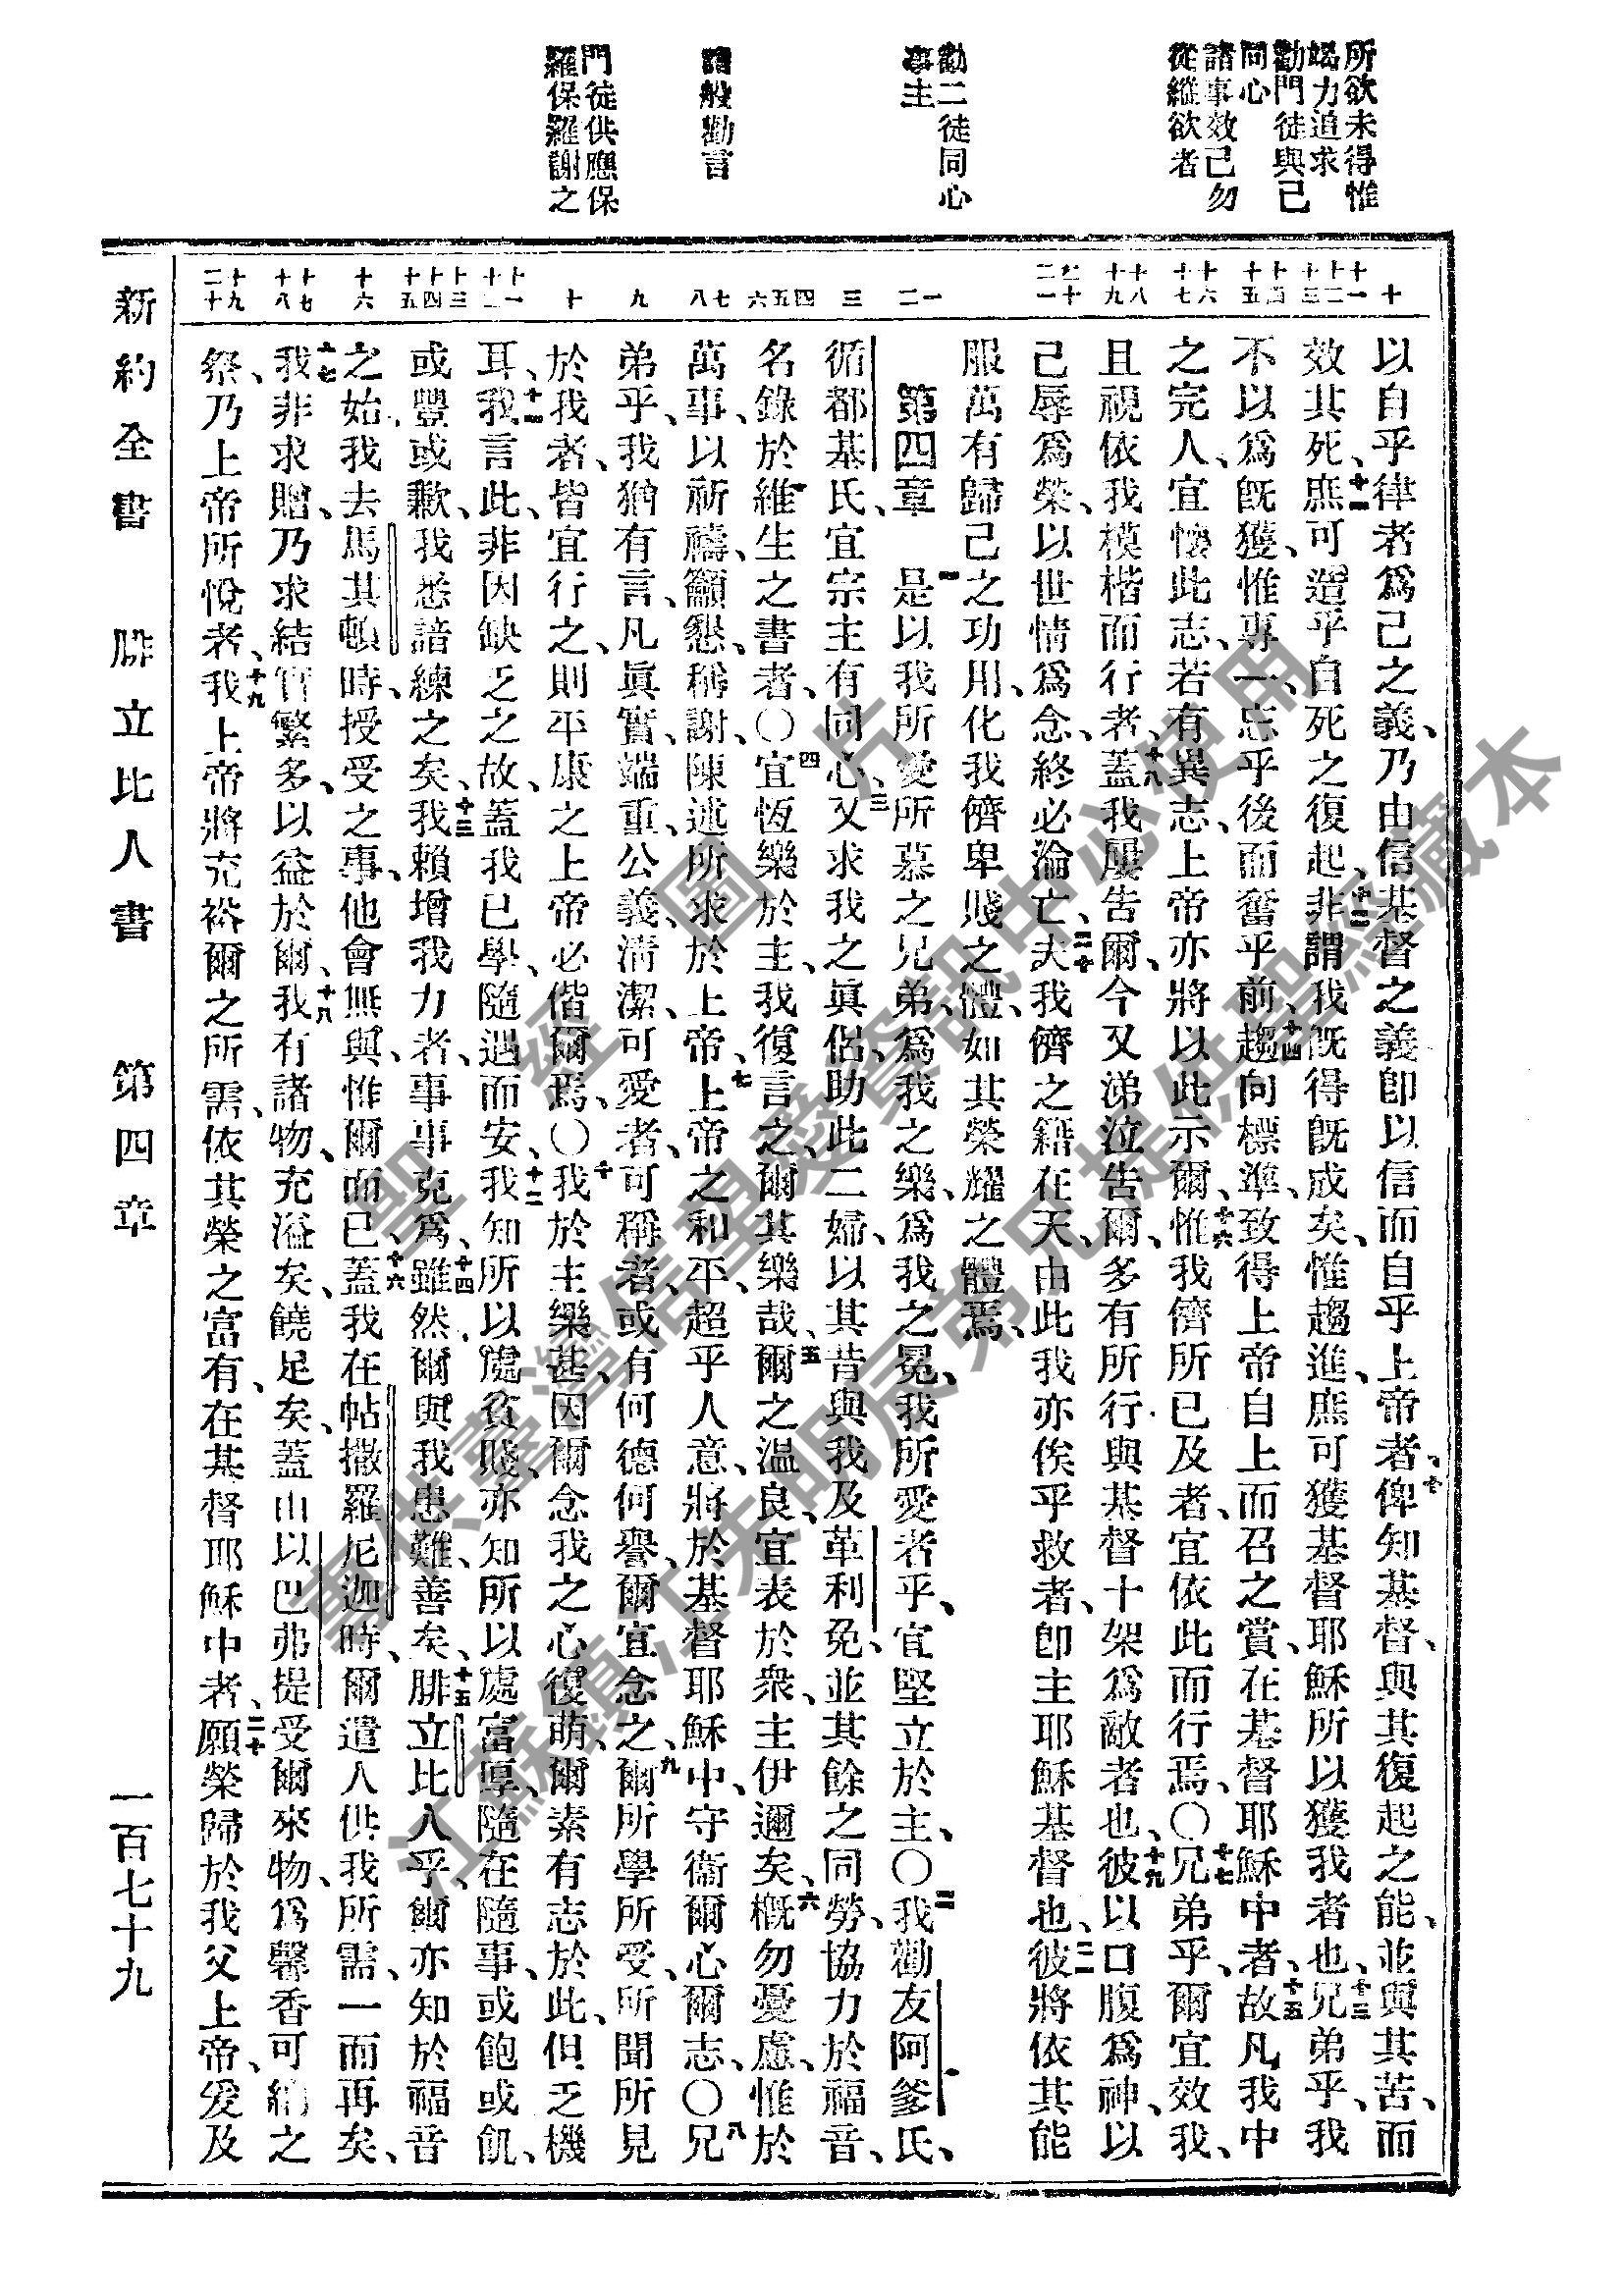 所欲未得惟
竭力追求
勸門徒與己
同心
諸事效己勿
從縱欲者
勸二徒同心
事主
諸般勸言
門徒供應保
羅保羅謝之
十
十一 十二 十三
十四 十五
十六 十七
十八 十九
二十 二一
一 二
三
四 五 六
七 八
九
十
十一 十二
十三 十四 十五
十六
十七 十八
十九 二十
以自乎律者爲己之義、乃由信基督之義、卽以信而自乎上帝者、十俾知基督、與其復起之能、並與其苦、而
效其死、十一庶可造乎自死之復起、十二非謂我旣得旣成矣、惟趨進、庶可獲基督耶穌所以獲我者也、十三兄弟乎、我
不以爲旣獲、惟專一、忘乎後而奮乎前、十四趨向標準、致得上帝自上而召之賞、在基督耶穌中者、十五故凡我中
之完人、宜懷此志、若有異志、上帝亦將以此示爾、十六惟我儕所已及者、宜依此而行焉、〇十七兄弟乎、爾宜效我、
且視依我模楷而行者、十八蓋我屢吿爾、今又涕泣吿爾、多有所行、與基督十架爲敵者也、十九彼以口腹爲神、以
己辱爲榮、以世情爲念、終必淪亡、二十夫我儕之籍在天、由此我亦俟乎救者、卽主耶穌基督也、二一彼將依其能
服萬有歸己之功用、化我儕卑賤之體、如其榮耀之體焉、
第四章 一是以我所愛所慕之兄弟、爲我之樂、爲我之冕、我所愛者乎、宜堅立於主、〇二我勸友阿爹氏、
循都基氏、宜宗主有同心、三又求我之眞侶、助此二婦、以其昔與我及革利免、並其餘之同勞、協力於福音、
名錄於維生之書者、〇四宜恆樂於主、我復言之、爾其樂哉、五爾之溫良、宜表於衆、主伊邇矣、六槪勿憂慮、惟於
萬事、以祈禱、籲懇、稱謝、陳述所求於上帝、七上帝之和平、超乎人意、將於基督耶穌中、守衞爾心爾志、〇八兄
弟乎、我猶有言、凡眞實、端重、公義、淸潔、可愛者、可稱者、或有何德何譽、爾宜念之、九爾所學所受、所聞所見
於我者、皆宜行之、則平康之上帝必偕爾焉、〇十我於主樂甚、因爾念我之心復萌、爾素有志於此、但乏機
耳、十一我言此、非因缺乏之故、蓋我已學、隨遇而安、十二我知所以處貧賤、亦知所以處富厚、隨在隨事、或飽或飢、
或豐或歉、我悉諳練之矣、十三我賴增我力者、事事克爲、十四雖然、爾與我患難、善矣、十五腓立比人乎、爾亦知於福音
之始、我去馬其頓時、授受之事、他會無與、惟爾而已、十六蓋我在帖撒羅尼迦時、爾遣人供我所需、一而再矣、
十七我非求贈、乃求結實繁多、以益於爾、十八我有諸物、充溢矣、饒足矣、蓋由以巴弗提受爾來物、爲馨香可納之
祭、乃上帝所悅者、十九我上帝將充裕爾之所需、依其榮之富有、在基督耶穌中者、二十願榮歸於我父上帝、爰及
新約全書 腓立比人書 第四章 一百七十九
聖經圖片
專供臺灣信望愛資訊中心使用
江蘇鎮江朱明辰弟兄提供聖經藏本